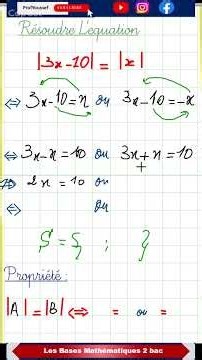 Résoudre L'equation
|3x-10| = |x|
⇔ 3x-10=x ou 3x-10=-x
⇔ 3x-x=10 ou 3x+x=10
⇔ 2x = 10 ou
⇔ ou
S = { ; }
Propriété :
|A| = |B| ⇔ = ou =
Les Bases Mathématiques 2 bac